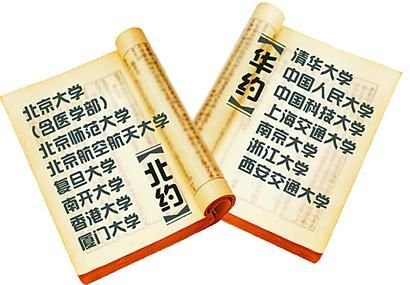 北京大学
(含医学部)
北京师范大学
北京航空航天大学
复旦大学
南开大学
香港大学
厦门大学
【北约】
【华约】
清华大学
中国人民大学
中国科技大学
上海交通大学
南京大学
浙江大学
西安交通大学